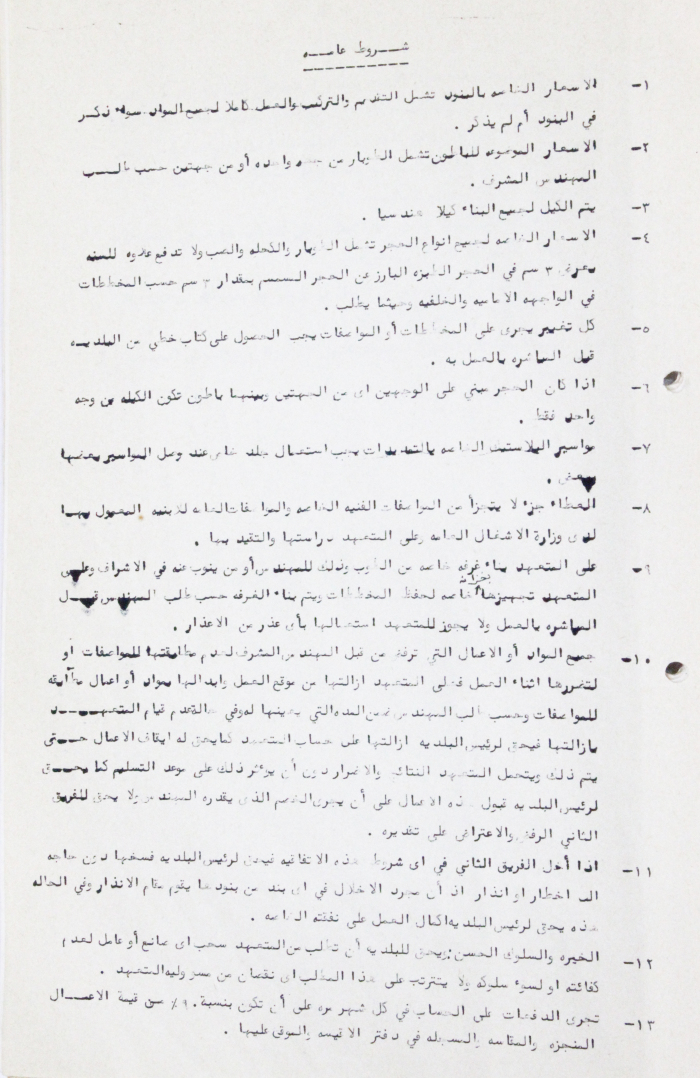 شـــروط عامـــه
١- الاسعار الخاصه بالبنود تشمل التقديم والتركيب والعمل كاملا لجميع المواد سواء ذكر
في البنود أم لم يذكر .
٢- الاسعار الموضوعه للباطون تشمل الطوبار من جهه واحده أو من جهتين حسب طلـــب
المهندس المشرف .
٣- يتم الكيل لجميع البناء كيلا هندسيا .
٤- الاسعار الخاصه لجميع انواع الحجر تشمل الطوبار والكحله والصب ولا تدفع علاوه للسنه
بعرض ٣ سم في الحجر الطبزه البارز عن الحجر السمسم بمقدار ٣ سم حسب المخططات
في الواجهه الاماميه والخلفيه وحيثما يطلب .
٥- كل تغيير يجرى على المخططات أو المواصفات يجب الحصول على كتاب خطي من البلديــه
قبل المباشره بالعمل به .
٦- اذا كان الحجر مبني على الوجهين اى من الجهتين وبينهما باطون تكون الكيله من وجه
واحد فقط .
٧- مواسير البلاستيك الخاصه بالتمديدات يجب استعمال جلد خاص عند وصل المواسير ببعضها
ببعض .
٨- العطاء جزء لا يتجزأ من المواصفات الفنيه الخاصه والمواصفات العامه للابنيه المعمول بهــا
لدى وزارة الاشغال العامه وعلى المتعهد دراستها والتقيد بها .
٩- على المتعهد بناء غرفه خاصه من الطوب وذلك للمهندس أو من ينوب عنه في الاشراف وعلــى
المتعهد تجهيزها بخزانه خاصه لحفظ المخططات ويتم بناء الغرفه حسب طلب المهندس قبــل
المباشره بالعمل ولا يجوز للمتعهد استعمالها بأى عذر من الاعذار .
١٠- جميع المواد أو الاعمال التي ترفض من قبل المهندس المشرف لعدم مطابقتها للمواصفات أو
لتضررها اثناء العمل فعلى المتعهد ازالتها من موقع العمل وابدالها بمواد أو اعمال مطابقه
للمواصفات وحسب طلب المهندس ضمن المده التي يعينها له وفي حالة عدم قيام المتعهـــــد
بازالتها فيحق لرئيس البلديه ازالتها على حساب المتعهد كما يحق له ايقاف الاعمال حـــتى
يتم ذلك ويتحمل المتعهد النتائج والاضرار دون أن يوءثر ذلك على موعد التسليم كما يحـــق
لرئيس البلديه قبول هذه الاعمال على أن يجرى الخصم الذى يقدره المهندس ولا يحق للفريق
الثاني الرفض والاعتراض على تقديره .
١١- اذا أخل الفريق الثاني في اى شروط هذه الاتفاقيه فيحق لرئيس البلديه فسخها دون حاجه
الى اخطار او انذار اذ أن مجرد الاخلال في اى بند من بنودها يقوم مقام الانذار وفي الحاله
هذه يحق لرئيس البلديه اكمال العمل على نفقته الخاصه .
١٢- الخبره والسلوك الحسن : ويحق للبلديه أن تطلب من المتعهد سحب اى صانع أو عامل لعدم
كفائته او لسوء سلوكه ولا يتترتب على هذا المطلب اى نقصان من مسوءوليه المتعهد .
١٣- تجرى الدفعات على الحساب في كل شهر مره على أن تكون بنسبة ٩٠٪ من قيمة الاعمـــال
المنجزه والمقاسه والمسجله في دفتر الاقيسه والموقع عليها .